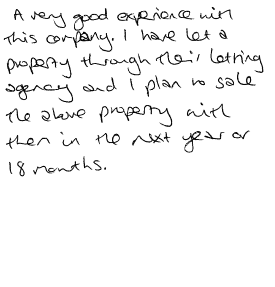 A very good experience with
this company. I have let a
property through their letting
agency and I plan to sale
the above property with
then in the next year or
18 months.